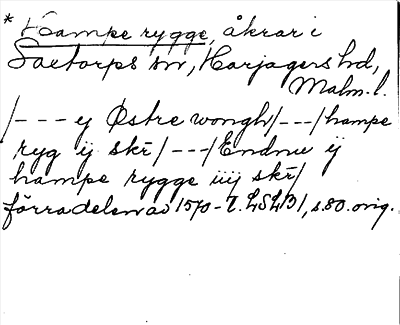 * Hampe rygge, åkrar i
Saxtorps sn, Harjagers hd,
Malm. l.
/--- ij Østre wongh/---/hampe
ryg ij skr̄/---/Endnu ij
hampe rygge iiij skr̄/
förra delen av 1570-t. LSLB1, s.80. orig.